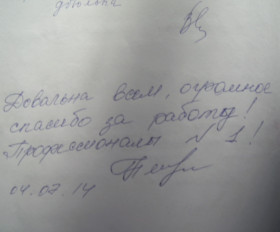 Довальна всем, огромное
спасибо за работу!
Профессионалы №1!
04.02.14